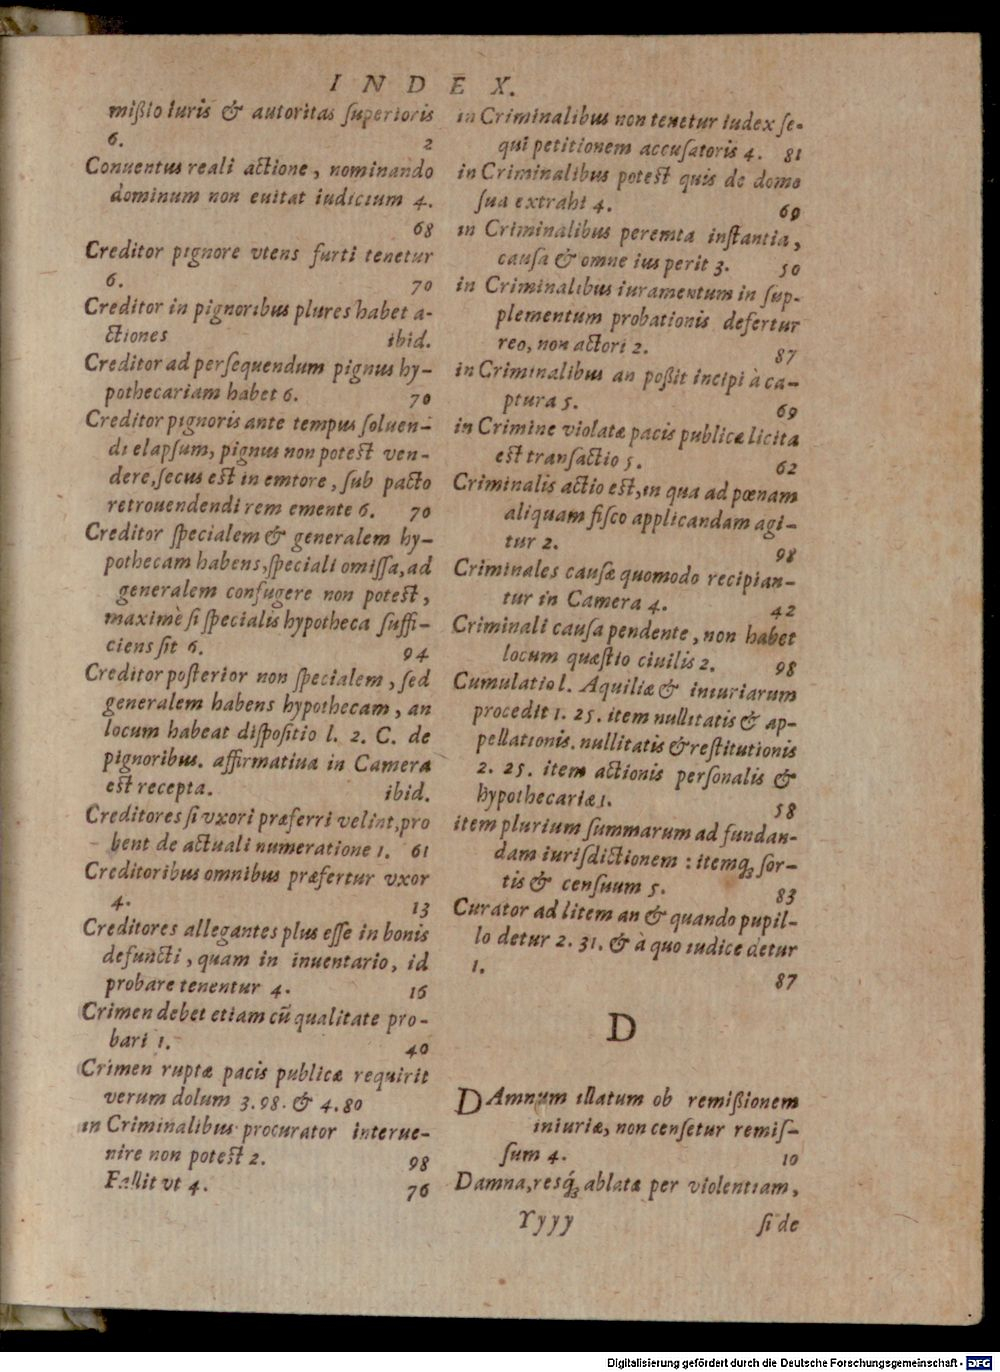 INDEX.
mißio iuris & autoritas ſuperioris
6. 2
Conuentus reali actione, nominando
dominum non euitat iudicium 4.
68
Creditor pignore vtens furti tenetur
6. 70
Creditor in pignoribus plures habet a-
ctiones ibid.
Creditor ad perſequendum pignus hy-
pothecariam habet 6. 70
Creditor pignoris ante tempus ſoluen-
di elapſum, pignus non poteſt ven-
dere, ſecus eſt in emtore, ſub pacto
retrouendendi rem emente 6. 70
Creditor ſpecialem & generalem hy-
pothecam habens, ſpeciali omiſſa, ad
generalem confugere non poteſt,
maximè ſi ſpecialis hypotheca ſuffi-
ciens ſit 6. 94
Creditor poſterior non ſpecialem, ſed
generalem habens hypothecam, an
locum habeat diſpoſitio l. 2. C. de
pignoribus. affirmatiua in Camera
eſt recepta. ibid.
Creditores ſi vxori præferri velint, pro
bent de actuali numeratione 1. 61
Creditoribus omnibus præfertur vxor
4. 13
Creditores allegantes plus eſſe in bonis
defuncti, quam in inuentario, id
probare tenentur 4. 16
Crimen debet etiam cū qualitate pro-
bari 1. 40
Crimen ruptæ pacis publicæ requirit
verum dolum 3. 98. & 4. 80
in Criminalibus procurator interue-
nire non poteſt 2. 98
Fallit vt 4. 76
in Criminalibus non tenetur iudex ſe-
qui petitionem accuſatoris 4. 81
in Criminalibus poteſt quis de domo
ſua extrahi 4. 69
in Criminalibus peremta inſtantia,
cauſa & omne ius perit 3. 50
in Criminalibus iuramentum in ſup-
plementum probationis defertur
reo, non actori 2. 87
in Criminalibus an poßit incipi à ca-
ptura 5. 69
in Crimine violatæ pacis publicæ licita
eſt tranſactio 5. 62
Criminalis actio eſt, in qua ad pœnam
aliquam fiſco applicandam agi-
tur 2. 98
Criminales cauſæ quomodo recipian-
tur in Camera 4. 42
Criminali cauſa pendente, non habet
locum quæſtio ciuilis 2. 98
Cumulatio l. Aquiliæ & iniuriarum
procedit 1. 25. item nullitatis & ap-
pellationis. nullitatis & reſtitutionis
2. 25. item actionis perſonalis &
hypothecariæ 1. 58
item plurium ſummarum ad fundan-
dam iurisdictionem: itemq́; ſor-
tis & cenſuum 5. 83
Curator ad litem an & quando pupil-
lo detur 2. 31. & à quo iudice detur
1. 87
D
DAmnum illatum ob remißionem
iniuriæ, non cenſetur remiſ-
ſum 4. 10
Damna, resq́; ablatæ per violentiam,
Yyyy ſi de
Digitalisierung gefördert durch die Deutsche Forschungsgemeinschaft - DFG